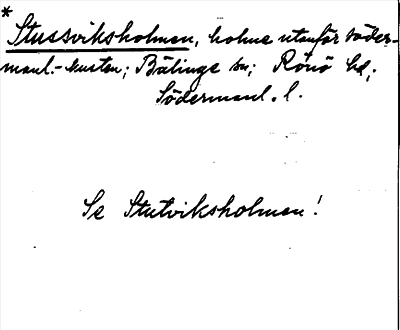 *
Stussviksholmen, holme utanför söder-
manl.-kusten; Bälinge sn; Rönö hd;
Södermanl. l.
Se Stutviksholmen!